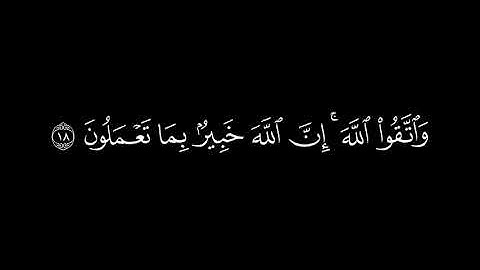 وَٱتَّقُوا۟ ٱللَّهَ ۚ إِنَّ ٱللَّهَ خَبِيرٌۢ بِمَا تَعْمَلُونَ ١٨